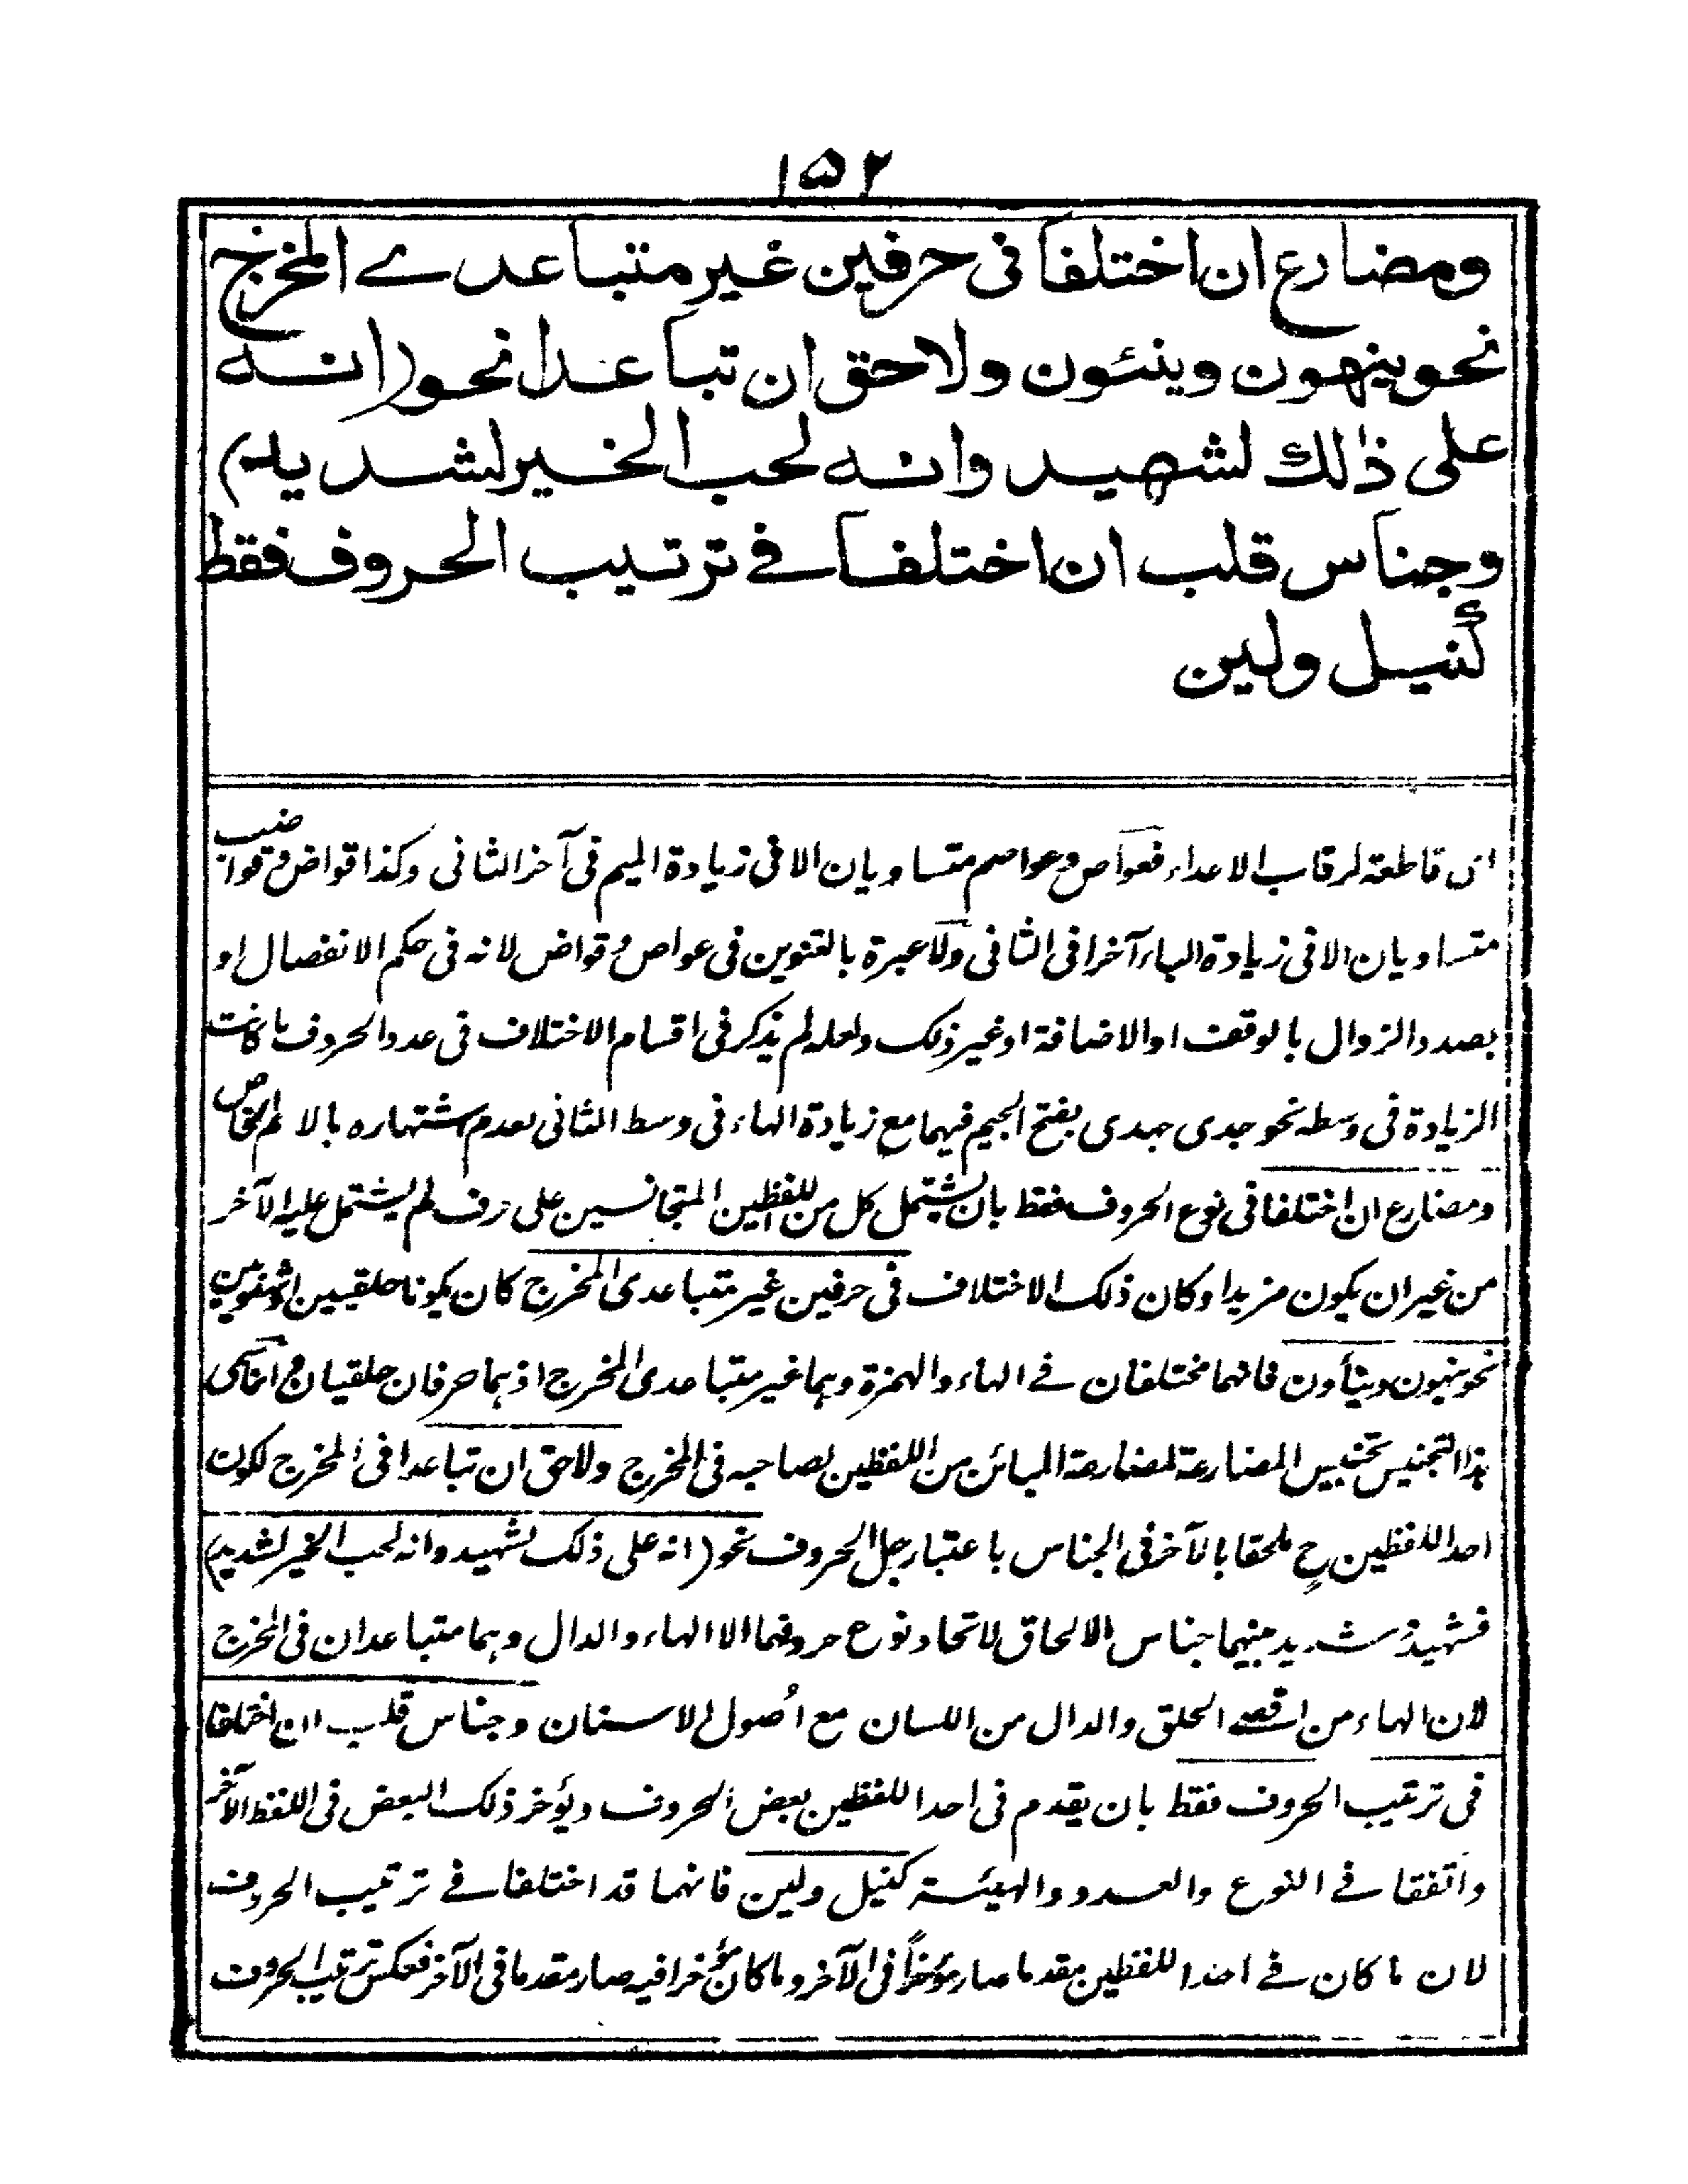 ١٥٢
ومضارع ان اختلفا فى حرفين غير متباعدے المخرج
نحو ينهون وينئون ولاحق ان تباعدا نحو (انه
على ذلك لشهيد وانه لحب الخير لشديد)
وجناس قلب ان اختلفا فے ترتيب الحروف فقط
كنيل ولين
اى قاطعة لرقاب الاعداء فعواص وعواصم متساويان الا فى زيادة الميم فى آخر الثانى وكذا قواض وقواضب
متساويان الا فى زيادة الباء آخرا فى الثانى ولا عبرة بالتنوين فى عواص وقواض لانه فى حكم الانفصال او
بصدد الزوال بالوقف او الاضافة او غير ذلك ولعله لم يذكر فى اقسام الاختلاف فى عدد الحروف ما كانت
الزيادة فى وسطه نحو جدى جهدى بفتح الجيم فيهما مع زيادة الهاء فى وسط الثانى لعدم اشتهاره بالاسم الخاص
ومضارع ان اختلفا فى نوع الحروف فقط بان يشتمل كل من اللفظين المتجانسين على حرف لم يشتمل عليه الآخر
من غير ان يكون مزيدا وكان ذلك الاختلاف فى حرفين غير متباعدى المخرج كان يكونا حلقيين او شفويين
نحو ينهون وينأون فانهما مختلفان فے الهاء والهمزة وهما غير متباعدى المخرج اذ هما حرفان حلقيان وانما سمى
هذا التجنيس تجنيس المضارعة لمضارعة المبائن من اللفظين لصاحبه فى المخرج ولاحق ان تباعدا فى المخرج لكون
احد اللفظين ح ملحقا بالآخر فى الجناس باعتبار جل الحروف نحو (انه على ذلك لشهيد وانه لحب الخير لشديد)
فشهيد وشديد بينهما جناس الالحاق لاتحاد نوع حروفهما الا الهاء والدال وهما متباعدان فى المخرج
لان الهاء من اقصے الحلق والدال من اللسان مع اُصول الاسنان وجناس قلب ان اختلفا
فى ترتيب الحروف فقط بان يقدم فى احد اللفظين بعض الحروف ويؤخر ذلك البعض فى اللفظ الآخر
واتفقا فے النوع والعدد والهيئة كنيل ولين فانهما قد اختلفا فے ترتيب الحروف
لان ما كان فے احد اللفظين مقدما صار مؤخراً فى الآخر وما كان مؤخرا فيه صار مقدما فى الآخر فعكس ترتيب الحروف